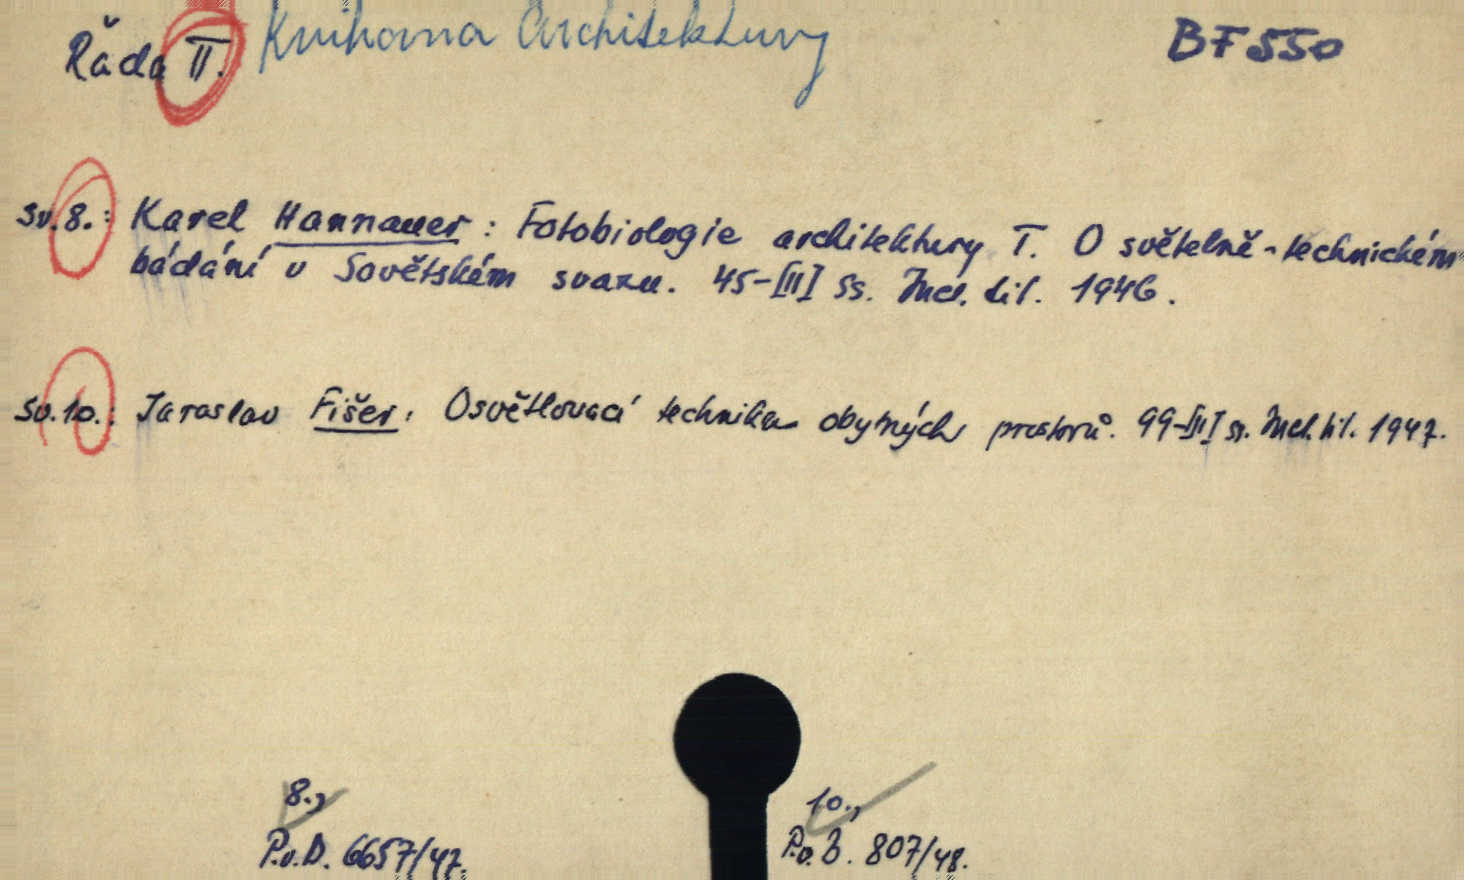 Řada II. Knihovna Architektury BF 550
Sv. 8.: Karel Hannauer: Fotobiologie architektury I. O světelně-technickém
bádání v Sovětském svazu. 45-[III] ss. Incl. til. 1946.
Sv. 10.: Jaroslav Fišer: Osvětlovací technika obytných prostorů. 99-[III] ss. Incl. til. 1947.
8., 10.,
P.v.D. 6657/47. P.v.D. 807/48.